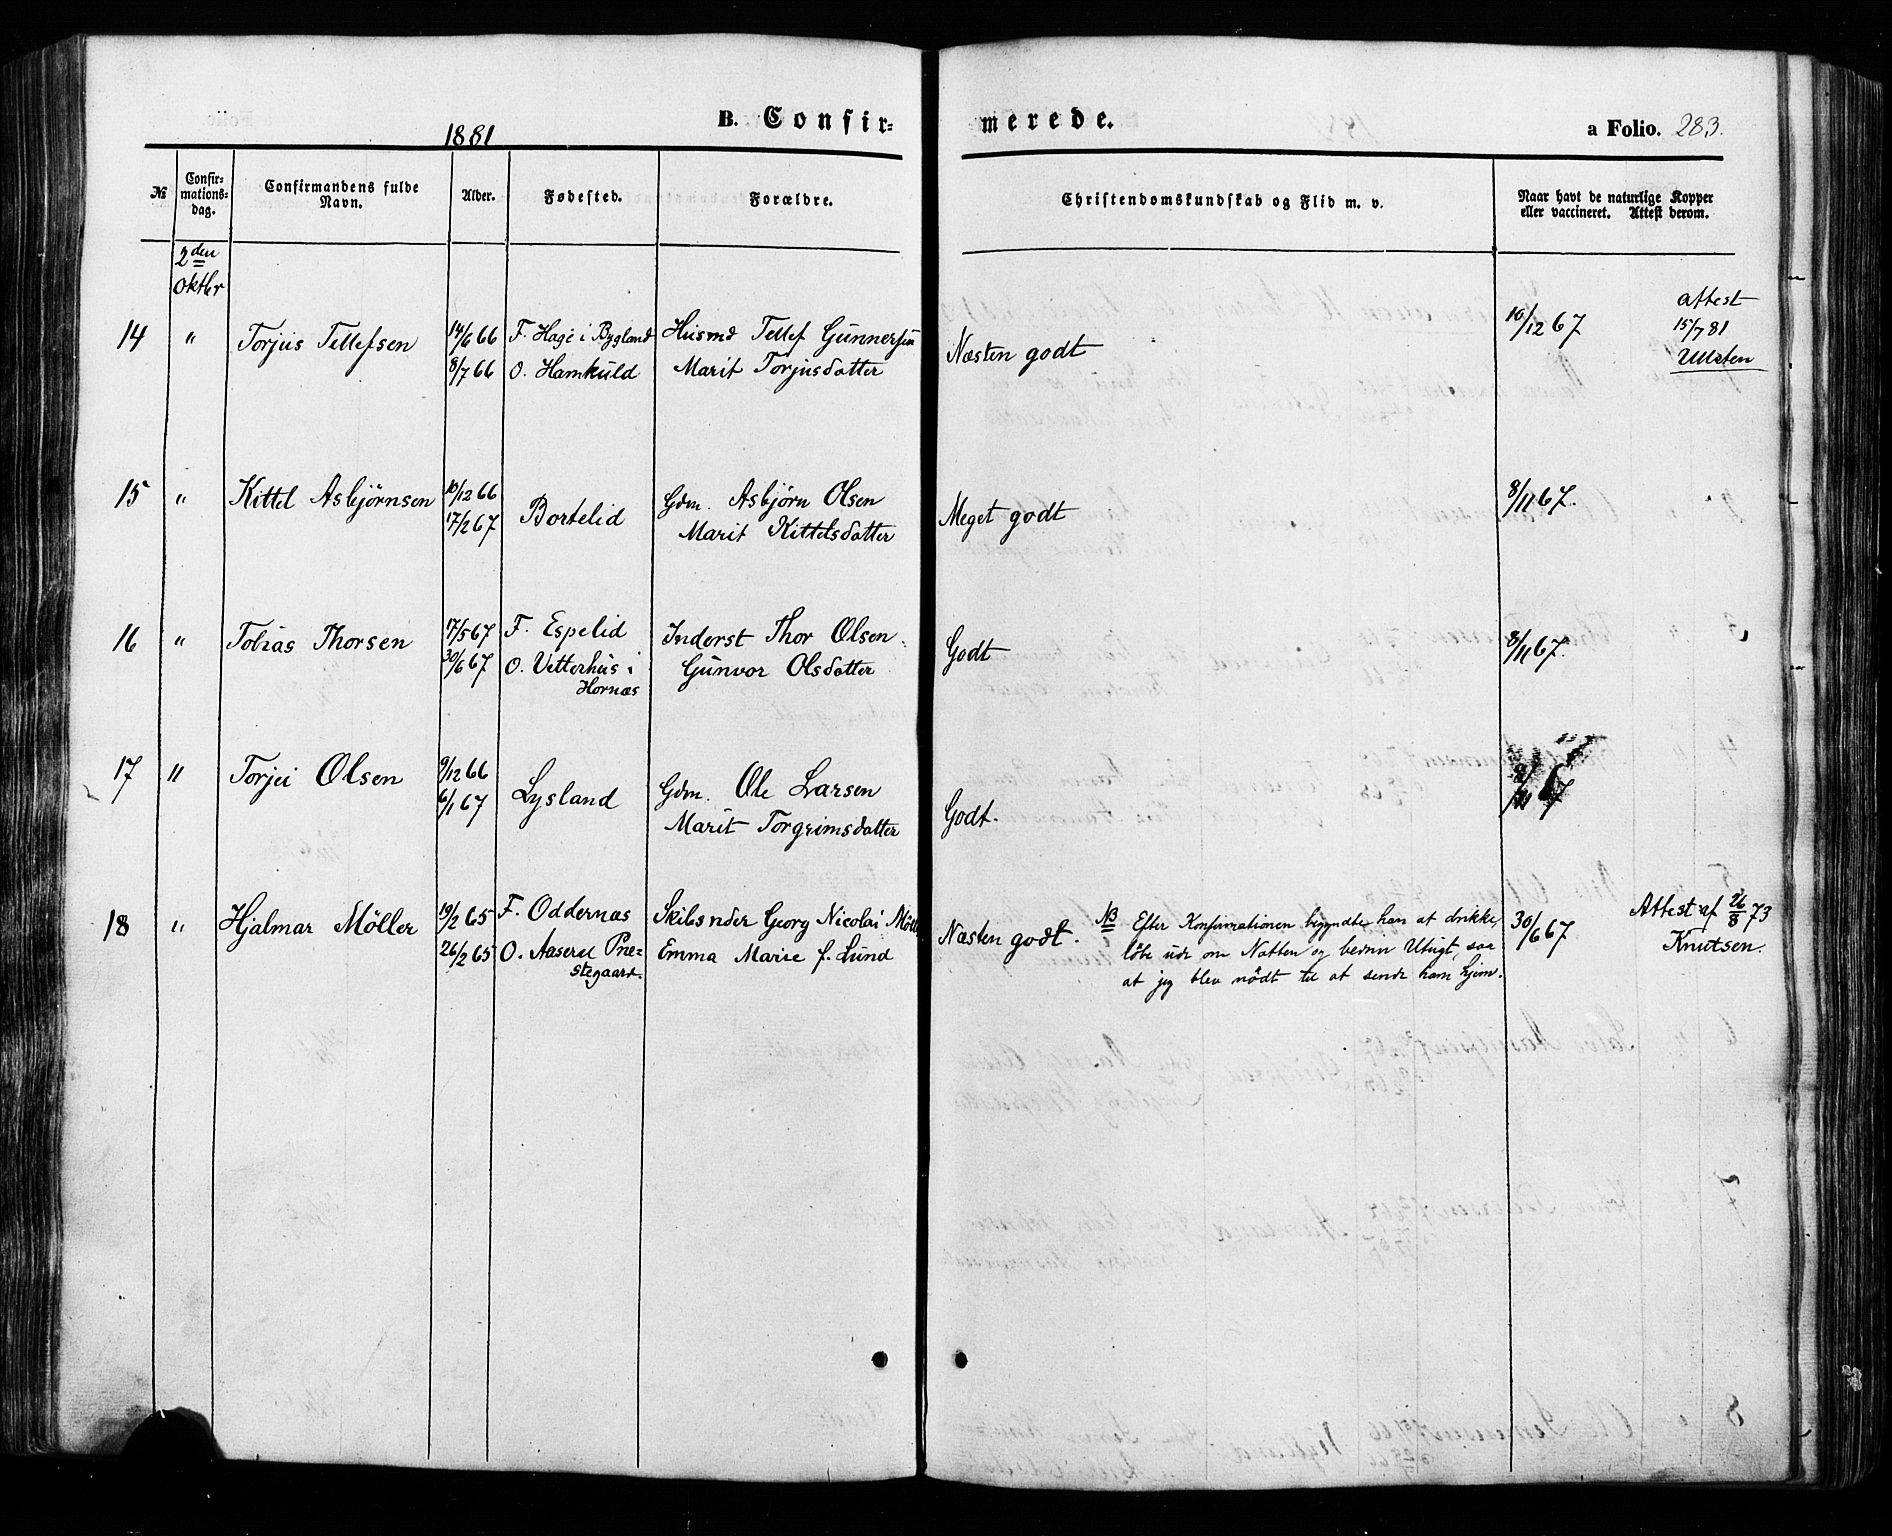 1881
B. Confir-
merede.
a Folio. 283.
№
Confir-
mations-
dag.
Confirmandens fulde
Navn.
Alder.
Fødested.
Forældre.
Christendomskundskab og Flid m. v.
Naar havt de naturlige Kopper
eller vaccineret. Attest derom.
2den
Oktbr
14 " Torjus Tellefsen 14/6 66 F. Hage i Bygland Husmd Tellef Gunnersen
8/7 66 O. Hamkuld Marit Torjusdatter
Næsten godt
10/12 67
Attest
15/7 81
Ulsten
15 " Kittel Asbjørnsen 10/12 66 Gdm. Asbjørn Olsen
17/2 67 Bortelid Marit Kittelsdatter
Meget godt
8/11 67.
16 " Tobias Thorsen 17/5 67 F. Espelid Inderst Thor Olsen
30/6 67 O. Vetterhus i Gunvor Olsdatter
Hornæs
Godt
8/11 67.
17 " Torjei Olsen 9/12 66 Gdm. Ole Larsen
6/1 67 Lysland Marit Torgrimsdatter
Godt.
67
18 " Hjalmar Möller 19/2 65 F. Oddernæs Skibsrder Georg Nicolai Möller
26/2 65 O. Aaseral Præ- Emma Marie f. Lund
stegaard.
Næsten godt. NB Efter Konfirmationen begyndte han at drikke,
løbe ude om Natten og bedrev Utugt, saa
at jeg blev nödt til at sende ham hjem.
30/6 67
Attest af 26/8 73
Knutsen.